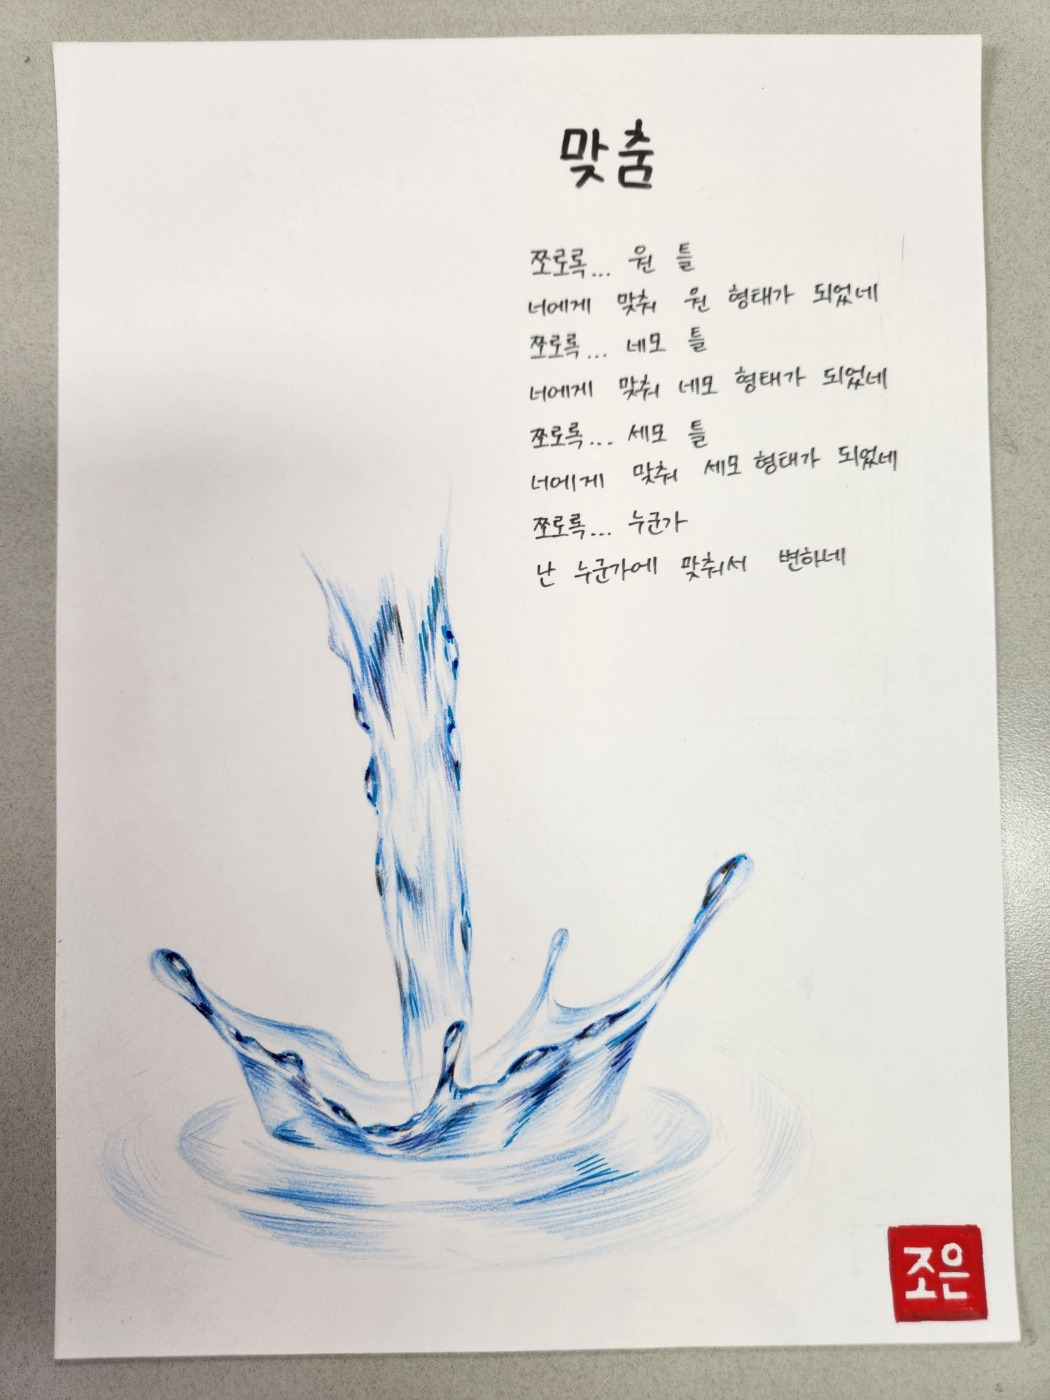 맞춤
쪼로록... 원 틀
너에게 맞춰 원 형태가 되었네
쪼로록... 네모 틀
너에게 맞춰 네모 형태가 되었네
쪼로록... 세모 틀
너에게 맞춰 세모 형태가 되었네
쪼로록... 누군가
난 누군가에 맞춰서 변하네
조은